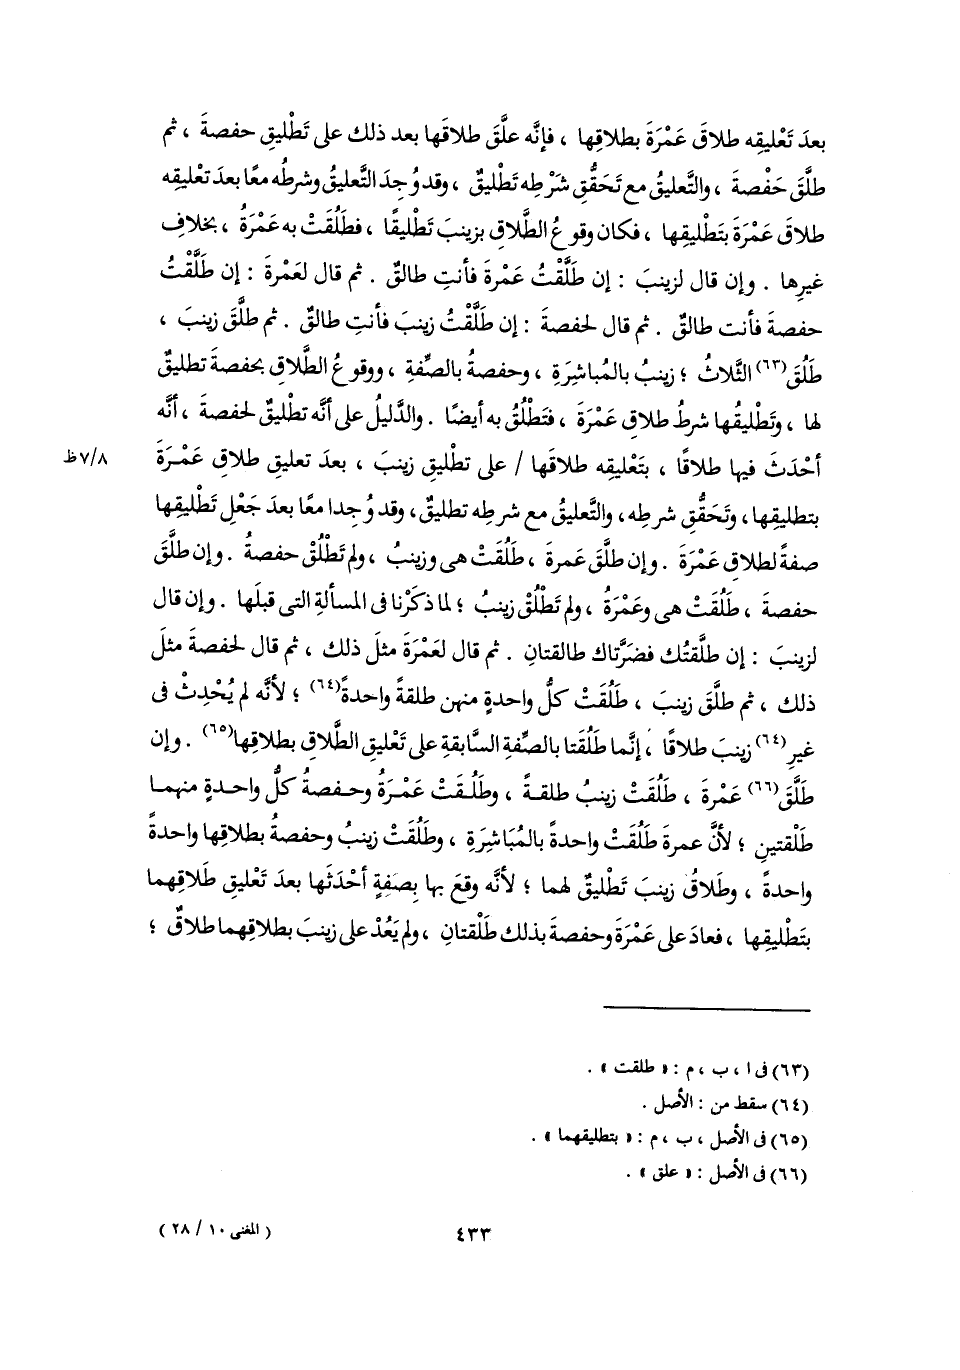 بعدَ تَعْليقِه طلاقَ عَمْرَةَ بطلاقِها ، فإنَّه علَّقَ طلاقَها بعد ذلك على تَطْليقِ حفصةَ ، ثم
طلَّقَ حَفْصةَ ، والتَّعليقُ مع تَحَقُّقِ شَرْطِه تَطْليقٌ ، وقد وُجِدَ التَّعليقُ وشرطُه معًا بعدَ تعْليقِه
طلاقَ عَمْرَةَ بتَطْليقِها ، فكان وقوعُ الطَّلاقِ بزينبَ تَطْليقًا ، فطَلُقَتْ به عَمْرَةُ ، بخلافِ
غيرِها . وإن قال لزينبَ : إن طَلَّقْتُ عَمْرةَ فأنتِ طالقٌ . ثم قال لعَمْرةَ : إن طَلَّقْتُ
حفصةَ فأنت طالقٌ . ثم قال لحفصةَ : إن طَلَّقْتُ زينبَ فأنتِ طالقٌ . ثم طلَّقَ زينبَ ،
طَلُقَ(٦٣) الثَّلاثُ ؛ زينبُ بالمُباشِرَةِ ، وحفصةُ بالصِّفةِ ، ووقوعُ الطلاقِ بحفصةَ تطليقٌ
لها ، وتَطْليقُها شرطُ طلاقِ عَمْرَةَ ، فتَطْلُقُ به أيضًا . والدَّليلُ على أنَّه تطليقٌ لحفصةَ ، أنَّه
أحْدَثَ فيها طلاقًا ، بتَعْليقِه طلاقَها / على تطْليقِ زينبَ ، بعدَ تعليقِ طلاقِ عَمْرَةَ
٧/٨ظ
بتطليقِها ، وتَحَقُّقِ شرطِه ، والتَّعليقُ مع شرطِه تطليقٌ ، وقد وُجِدا معًا بعدَ جَعْلِ تَطْليقِها
صفةً لطلاقِ عَمْرَةَ . وإن طلَّقَ عَمرةَ ، طَلُقَتْ هى وزينبُ ، ولم تَطْلُقْ حفصةُ . وإن طلَّقَ
حفصةَ ، طَلُقَتْ هى وعَمْرَةُ ، ولم تَطْلُقْ زينبُ ؛ لما ذكَرْنا فى المسألةِ التى قبلَها . وإن قال
لزينبَ : إن طلَّقتُك فضَرَّتاك طالقتانِ . ثم قال لعَمْرَةَ مثلَ ذلك ، ثم قال لحفصةَ مثلَ
ذلك ، ثم طلَّقَ زينبَ ، طَلُقَتْ كلُّ واحدةٍ منهن طلقةً واحدةً(٦٤) ؛ لأنَّه لم يُحْدِثْ فى
غيرِ(٦٤) زينبَ طلاقًا ، إنَّما طَلُقَتا بالصِّفةِ السَّابقةِ على تَعْليقِ الطَّلاقِ بطلاقِها(٦٥) . وإن
طَلَّقَ(٦٦) عَمْرةَ ، طَلُقَتْ زينبُ طلقةً ، وطَلُقَتْ عَمْرَةُ وحفصةُ كلُّ واحدةٍ منهما
طَلْقتينِ ؛ لأنَّ عمرةَ طَلُقَتْ واحدةً بالمُبَاشَرَةِ ، وطَلُقَتْ زينبُ وحفصةُ بطلاقِها واحدةً
واحدةً ، وطَلاقُ زينبَ تَطْليقٌ لهما ؛ لأنَّه وقعَ بها بِصَفِةٍ أحْدَثَها بعدَ تَعْليقِ طَلاقِهما
بتَطْليقِها ، فعادَ على عَمْرَةَ وحفصةَ بذلك طَلْقتانِ ، ولم يَعُدْ على زينبَ بطلاقِهما طلاقٌ ؛
(٦٣) فى ا ، ب ، م : « طلقت » .
(٦٤) سقط من : الأصل .
(٦٥) فى الأصل ، ب ، م : « بتطليقهما » .
(٦٦) فى الأصل : « علق » .
٤٣٣
( المغنى ١٠ / ٢٨ )